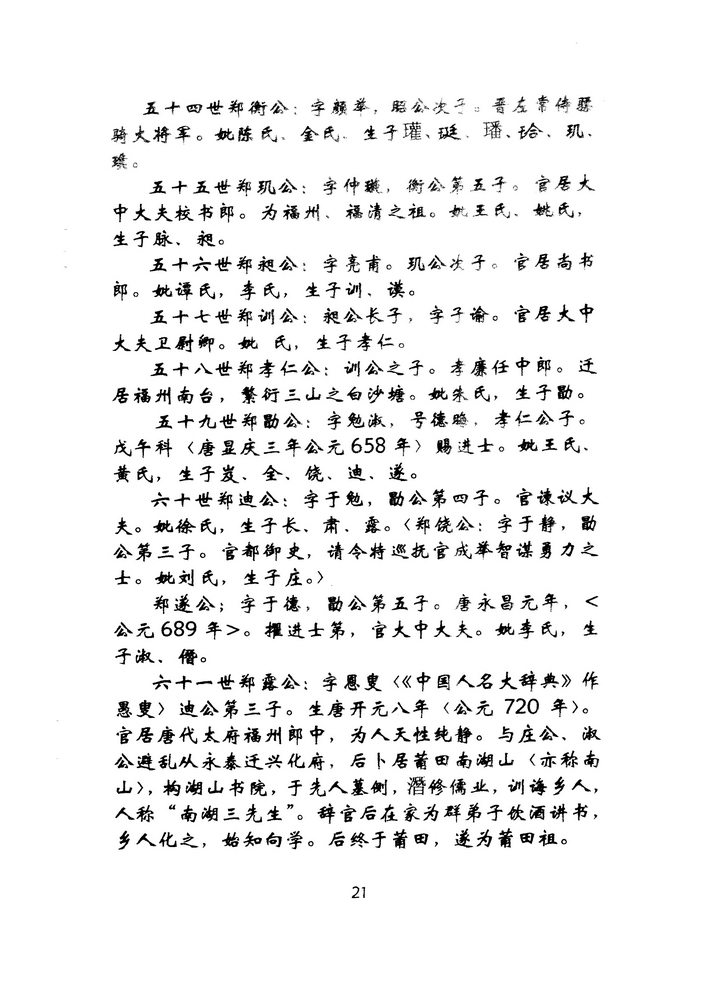 五十四世郑衡公：字颜举，昭公次子。晋左常侍骠
骑大将军。妣陈氏、金氏、生子瓘、珽、璠、珨、玑、
璵。
五十五世郑玑公：字仲璇，衡公第五子。官居大
中大夫校书郎。为福州、福清之祖。妣王氏、姚氏，
生子脉、昶。
五十六世郑昶公：字亮甫。玑公次子。官居尚书
郎。妣谭氏，李氏，生子训、谟。
五十七世郑训公：昶公长子，字子谕。官居大中
大夫卫尉卿。妣 氏，生子孝仁。
五十八世郑孝仁公：训公之子。孝廉任中郎。迁
居福州南台，繁衍三山之白沙塘。妣朱氏，生子勖。
五十九世郑勖公：字勉淑，号德晦，孝仁公子。
戊午科〈唐显庆三年公元658年〉赐进士。妣王氏、
黄氏，生子岌、全、饶、迪、遂。
六十世郑迪公：字于勉，勖公第四子。官谏议大
夫。妣徐氏，生子长、肃、露。〈郑饶公：字于静，勖
公第三子。官都御史，请令特巡抚官成举智谋勇力之
士。妣刘氏，生子庄。〉
郑遂公；字于德，勖公第五子。唐永昌元年，<
公元689年>。擢进士第，官大中大夫。妣李氏，生
子淑、僭。
六十一世郑露公：字恩叟〈《中国人名大辞典》作
愚叟〉迪公第三子。生唐开元八年〈公元 720 年〉。
官居唐代太府福州郎中，为人天性纯静。与庄公、淑
公避乱从永泰迁兴化府，后卜居莆田南湖山〈亦称南
山〉，构湖山书院，于先人墓侧，潜修儒业，训诲乡人，
人称“南湖三先生”。辞官后在家为群弟子饮酒讲书，
乡人化之，始知向学。后终于莆田，遂为莆田祖。
21